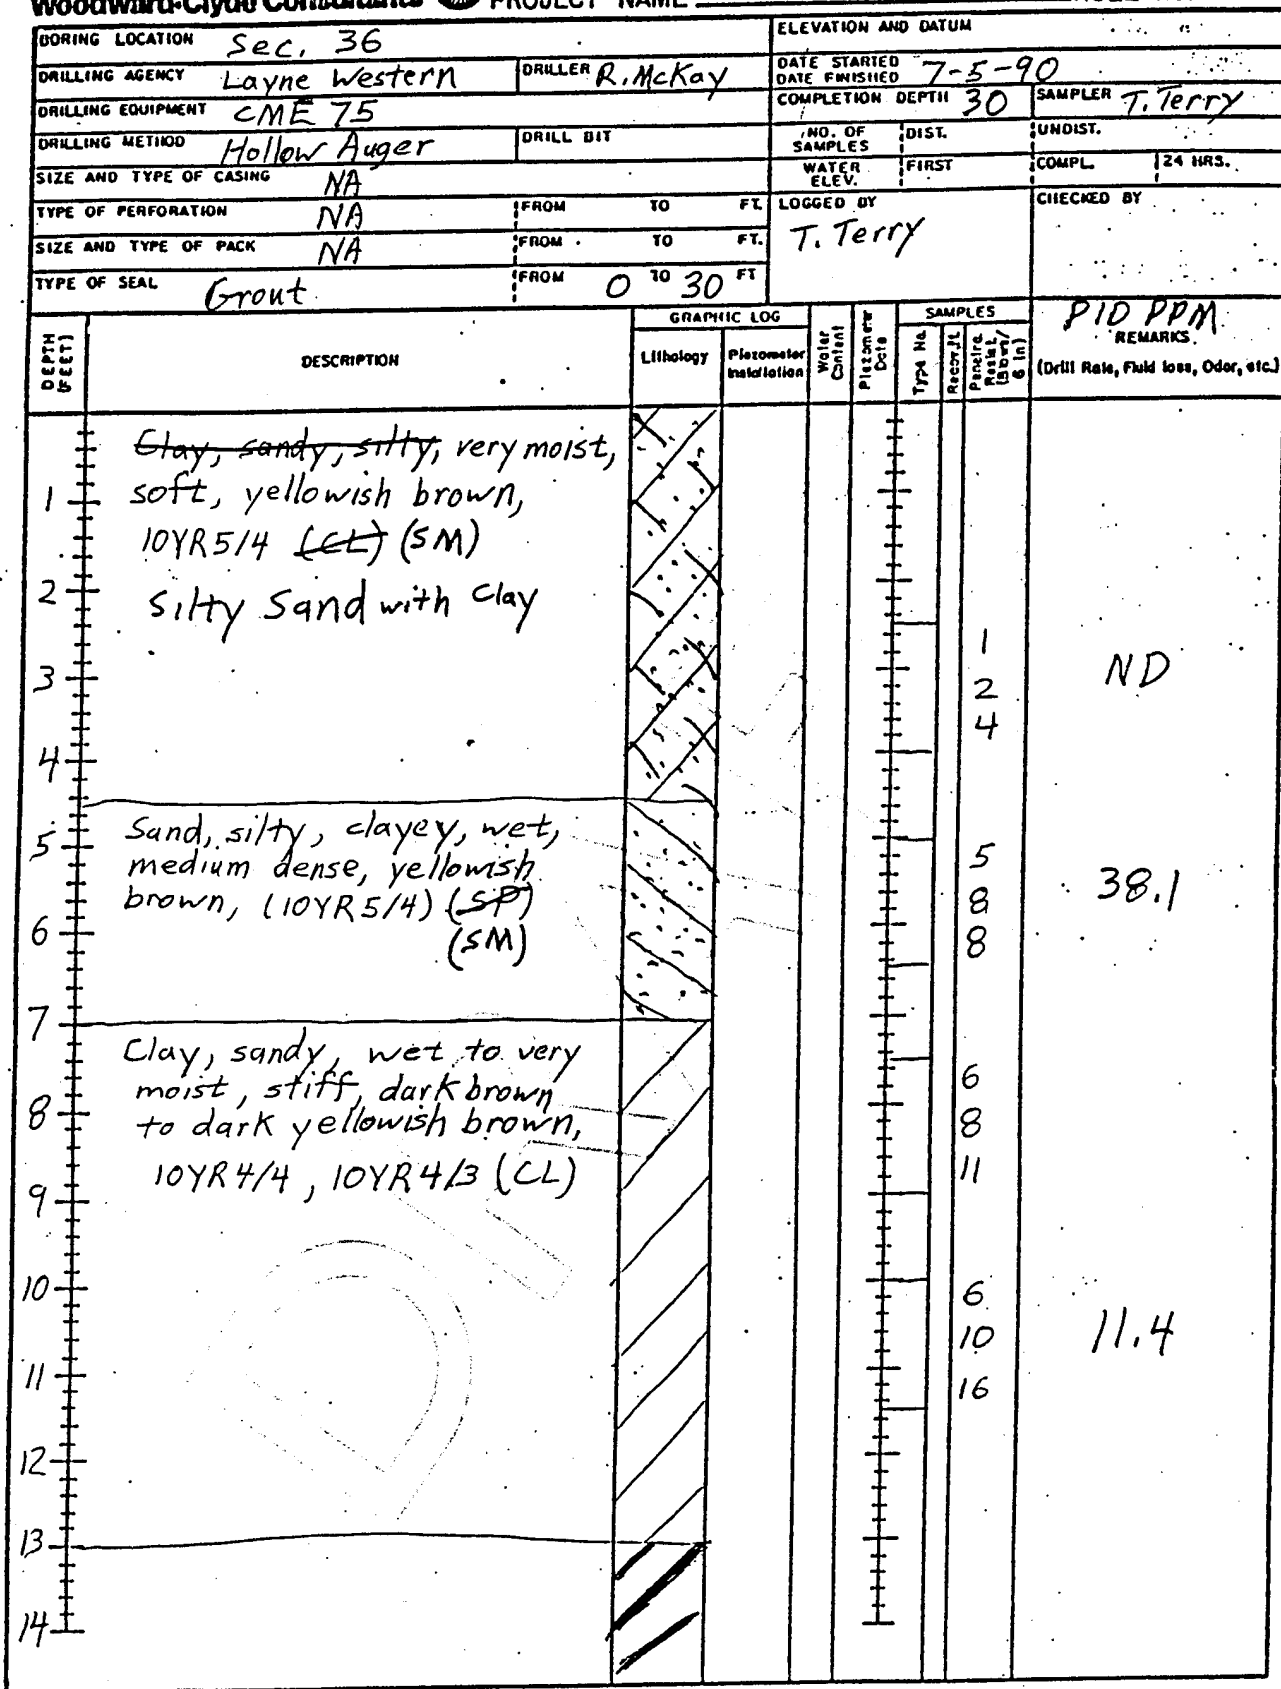 Woodward-Clyde Consultants PROJECT NAME
BORING LOCATION Sec. 36 ELEVATION AND DATUM
DRILLING AGENCY Layne Western DRILLER R. McKay DATE STARTED DATE FINISHED 7-5-90
DRILLING EQUIPMENT CME 75 COMPLETION DEPTH 30 SAMPLER T. Terry
DRILLING METHOD Hollow Auger DRILL BIT NO. OF SAMPLES DIST. UNDIST.
SIZE AND TYPE OF CASING NA WATER ELEV. FIRST COMPL. 24 HRS.
TYPE OF PERFORATION NA FROM TO FT. LOGGED BY T. Terry CHECKED BY
SIZE AND TYPE OF PACK NA FROM TO FT.
TYPE OF SEAL Grout FROM 0 TO 30 FT
DEPTH (FEET) DESCRIPTION GRAPHIC LOG Lithology Piezometer Installation Water Content Piezometer Data SAMPLES Type No. Recov. ft. Penetra. Resist. (Blows/ 6 in) PID PPM REMARKS
(Drill Rate, Fluid loss, Odor, etc.)
Clay, sandy, silty, very moist,
1 soft, yellowish brown,
10YR5/4 (CL) (SM)
2 Silty Sand with Clay
1
3 2 ND
4
4
5 Sand, silty, clayey, wet, 5
medium dense, yellowish 38.1
brown, (10YR5/4) (SP) 8
6 (SM) 8
7
Clay, sandy, wet to very 6
moist, stiff, dark brown
8 to dark yellowish brown, 8
10YR4/4, 10YR4/3 (CL) 11
9
10 6
10 11.4
11 16
12
13
14